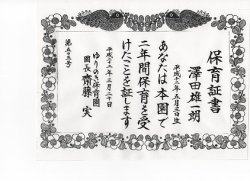 保育証書
澤田雄一朗
平成十六年五月三日生
あなたは本園で
二年間保育を受
けたことを証します
平成二十三年三月二十日
ゆりのき保育園
園長 齋藤 実
第五十三号